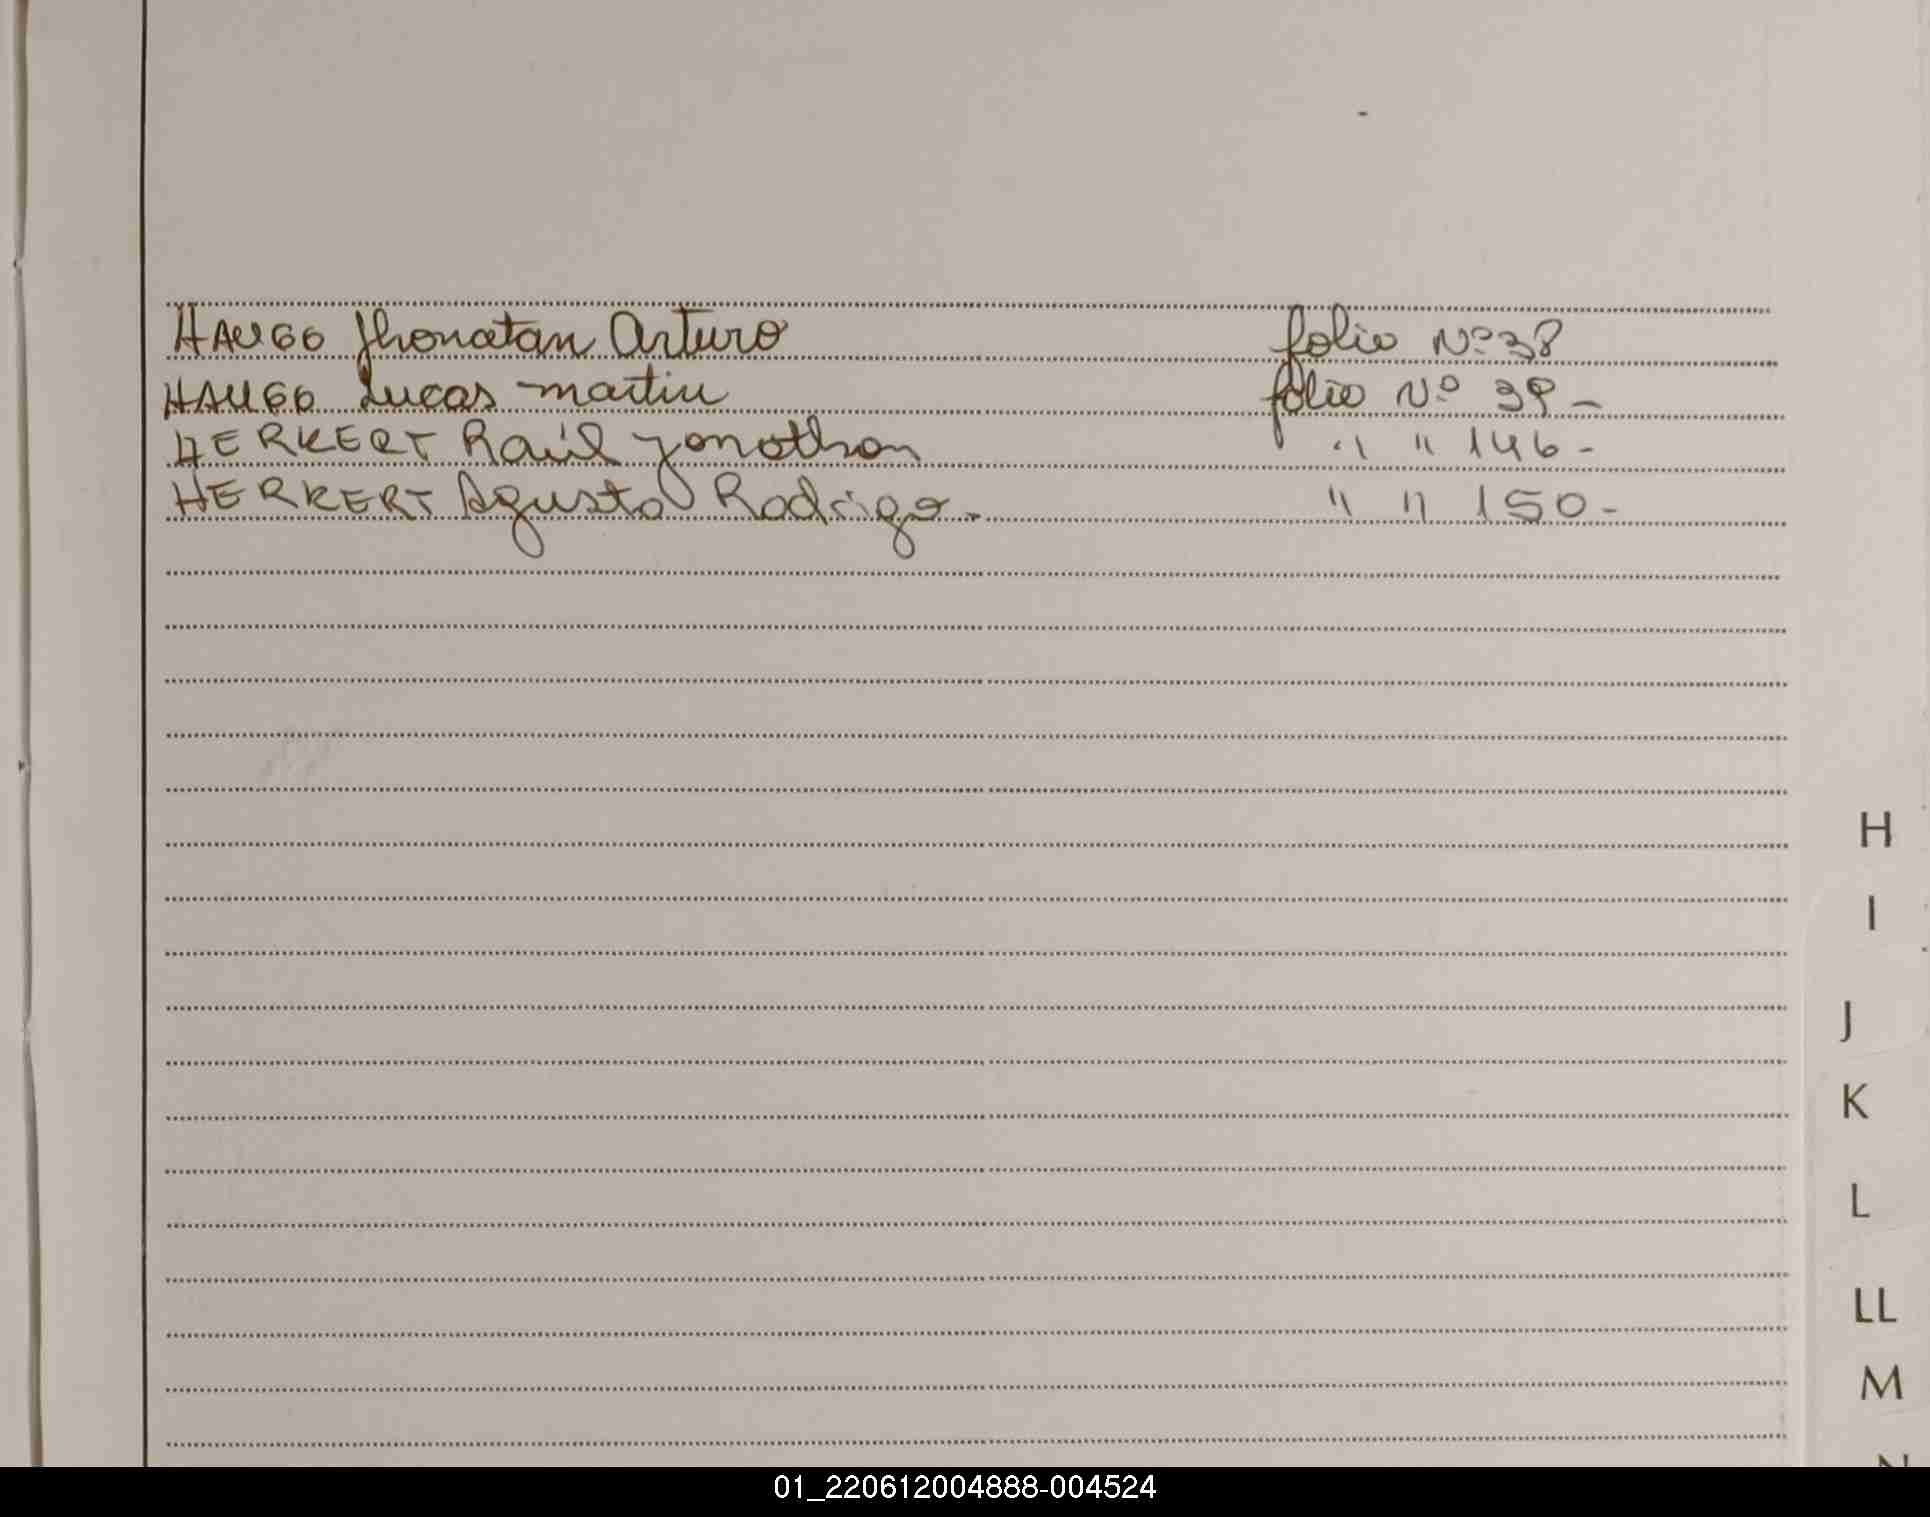 HAUGG Jhonatan Arturo folio Nº 38
HAUGG Lucas martin folio Nº 39 -
HERKERT Raúl yonathan " " 146 -
HERKERT Agusto Rodrigo. " " 150 -
H
I
J
K
L
LL
M
N
01_220612004888-004524